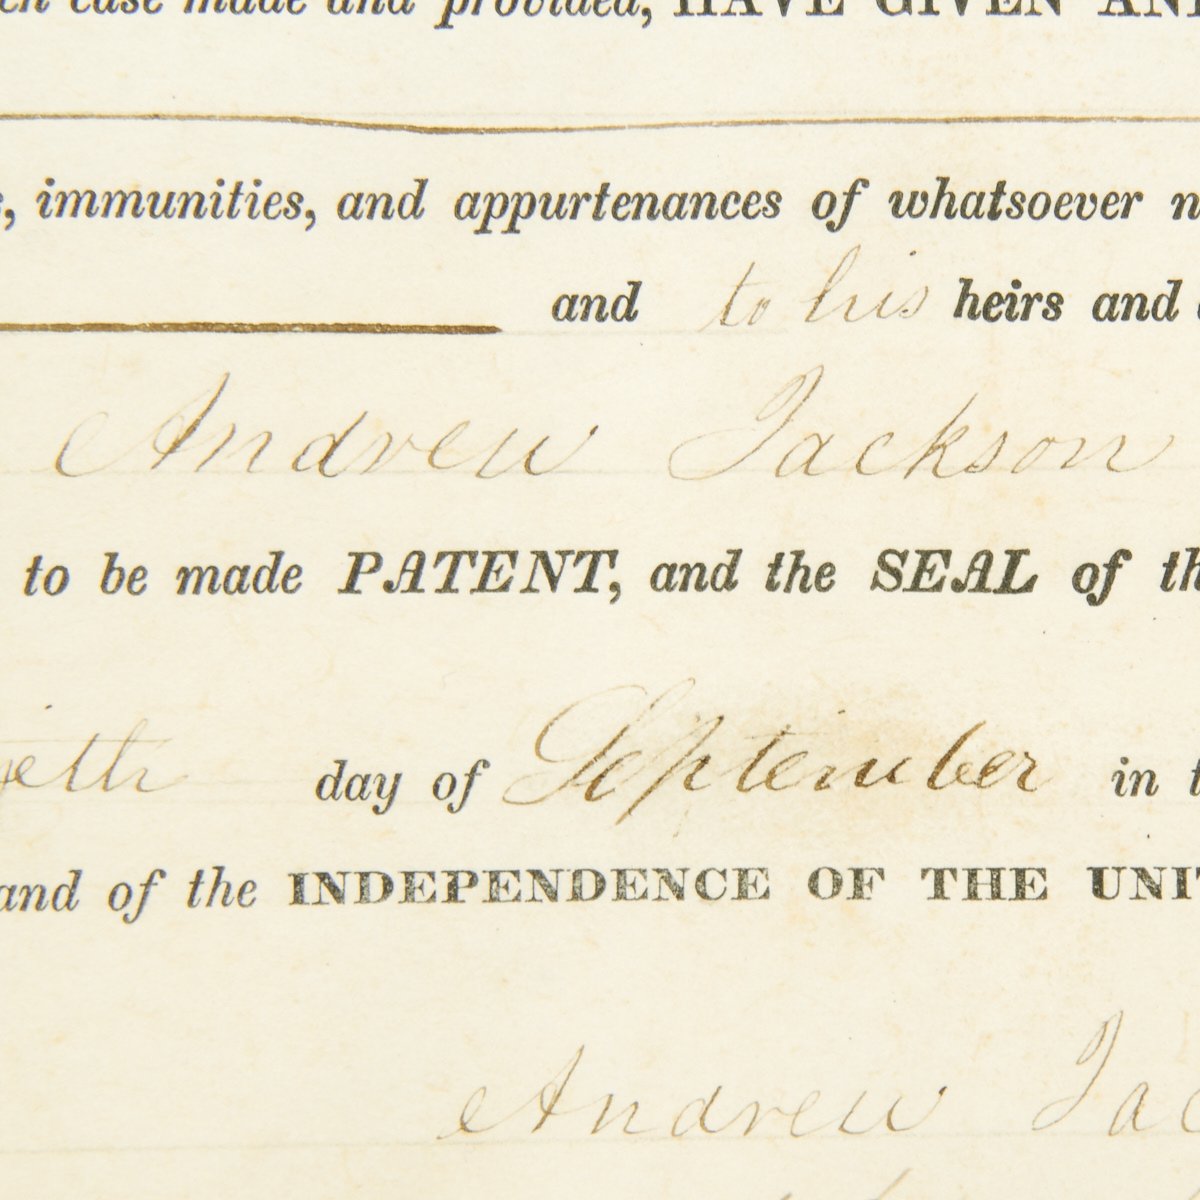 case made and provided, HAVE GIVEN AND
, immunities, and appurtenances of whatsoever
and to his heirs and
Andrew Jackson
to be made PATENT, and the SEAL of
day of September in
and of the INDEPENDENCE OF THE
Andrew